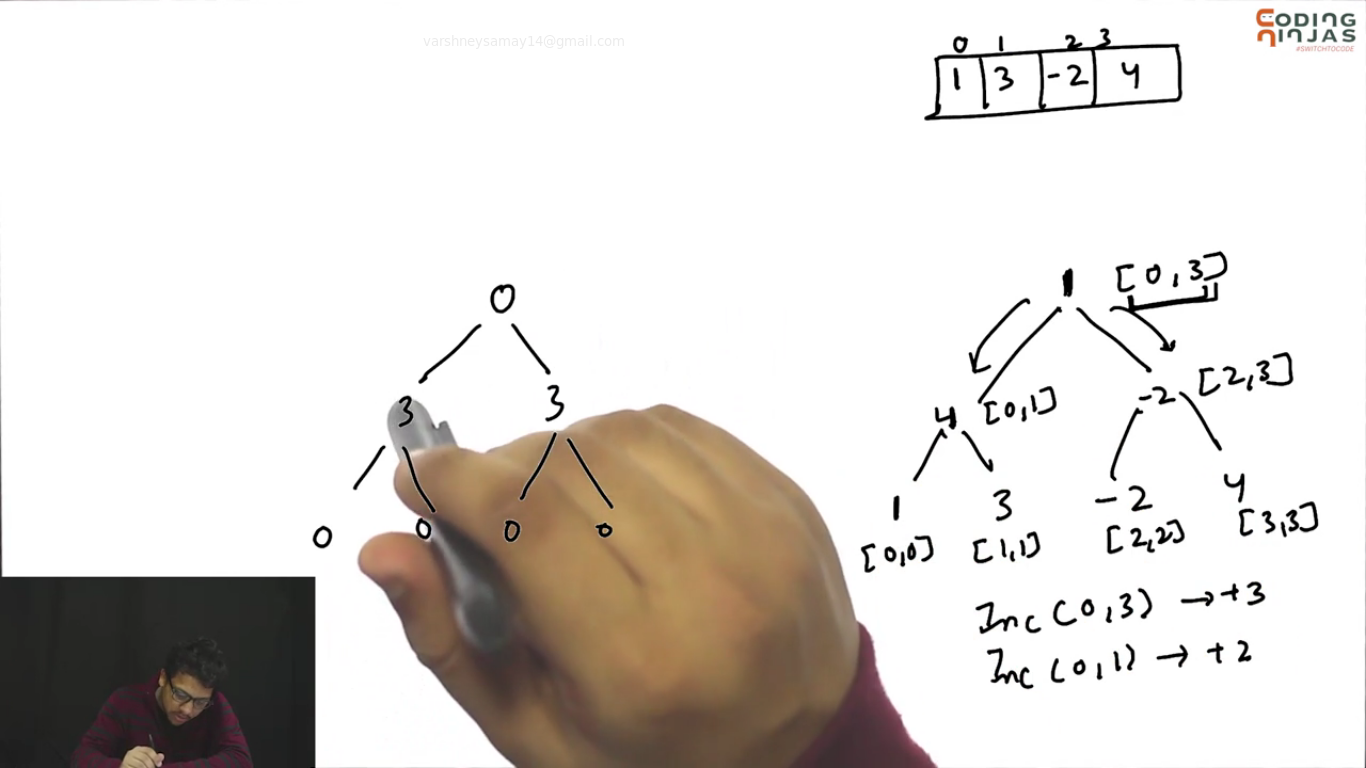 varshneysamay14@gmail.com
CODING
NINJAS
#SWITCHTOCODE
0 1 2 3
1 3 -2 4
0
3 3
0 0 0 0
1 [0,3]
4 [0,1] -2 [2,3]
1 3 -2 4
[0,0] [1,1] [2,2] [3,3]
Inc (0,3) → +3
Inc (0,1) → +2